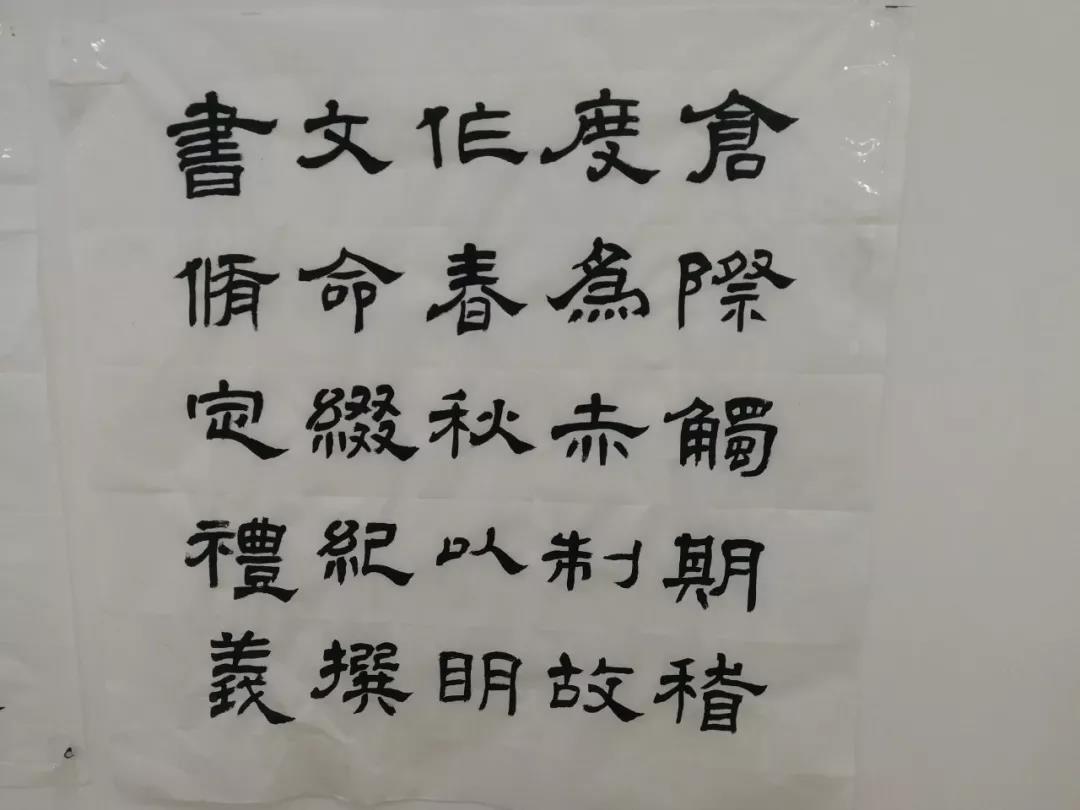 倉際觸期稽
度為赤制故
作春秋以明
文命綴紀撰
書脩定禮義